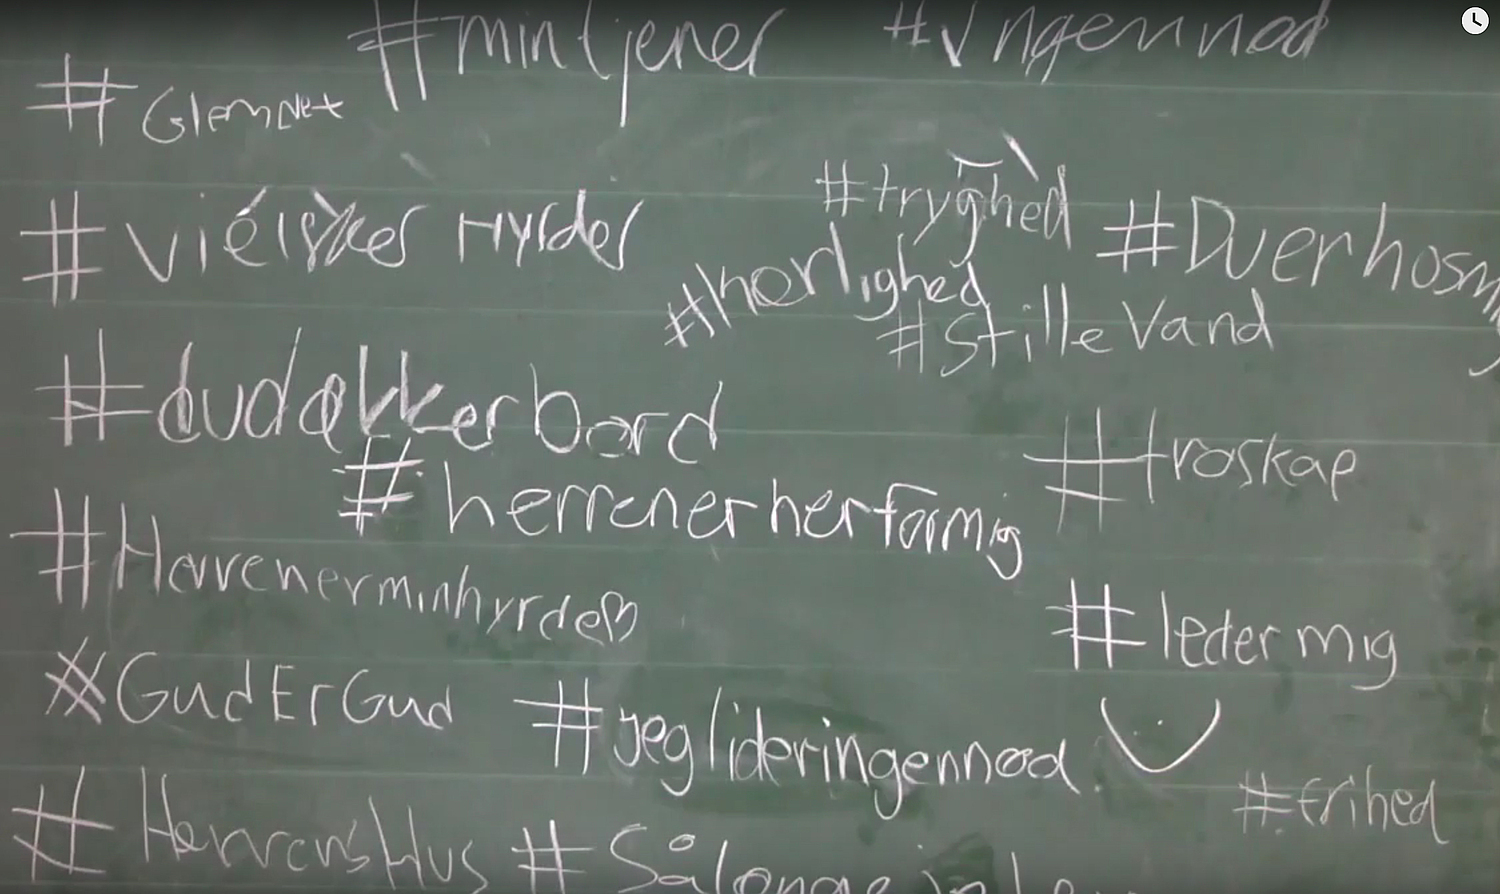 #mintjener #Ingennød
#Glemnet
#tryghed
#viélsker Hyrder #Duerhosm
#herlighed
#StilleVand
#dudækkerbord
#troskap
#herrenerherformig
#Herrenerminhyrde♡
#ledermig
#GudErGud #jeglideringennød
#frihed
#HerrensHus #Sålænge